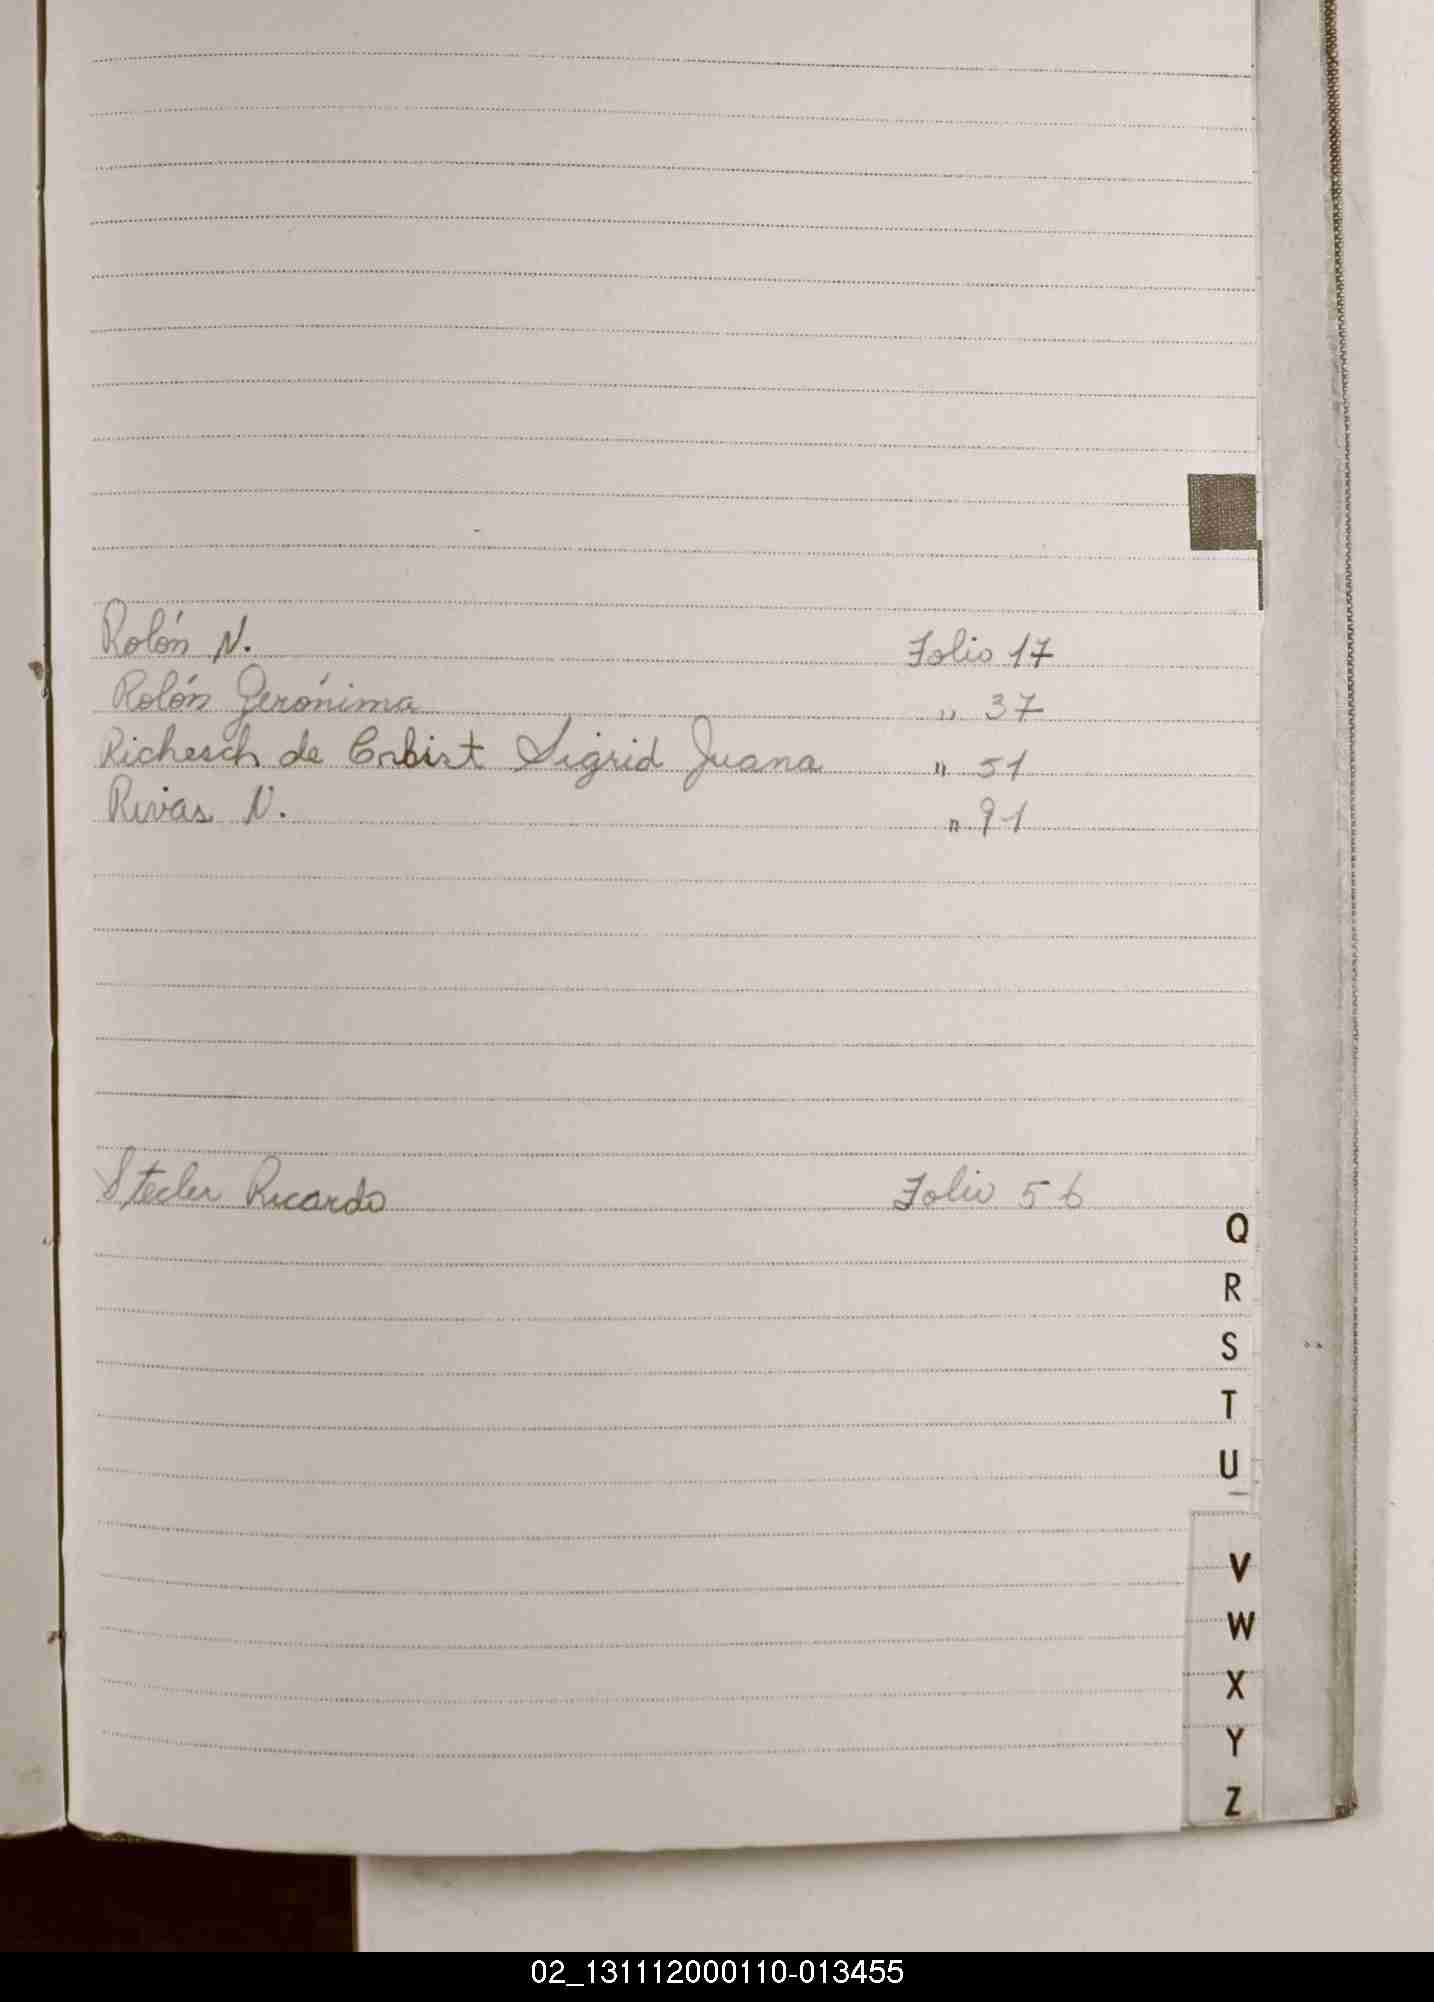 Rolón N. Folio 17
Rolón Gerónima " 37
Richesch de Erbist Sigrid Juana " 51
Rivas N. " 91
Stecler Ricardo Folio 56
Q
R
S
T
U
V
W
X
Y
Z
02_131112000110-013455